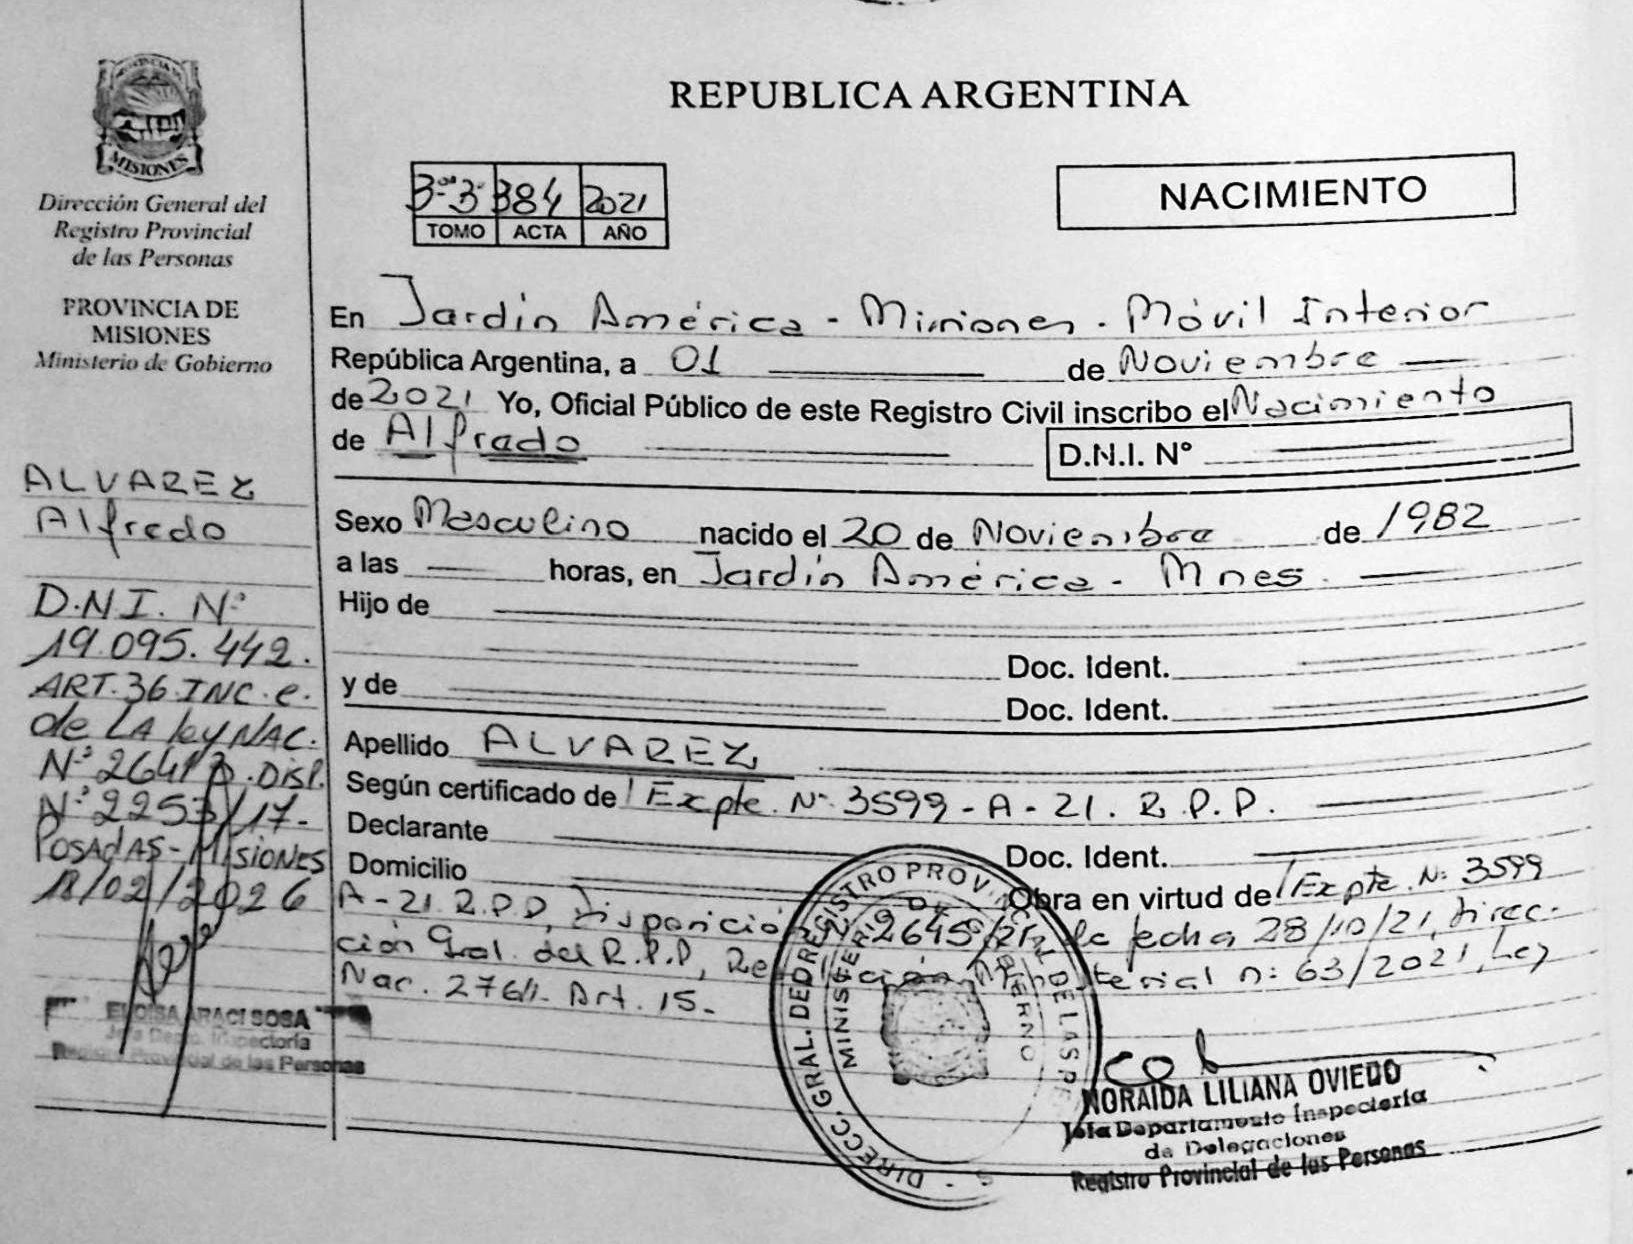 PROVINCIA DE
MISIONES
Dirección General del
Registro Provincial
de las Personas
PROVINCIA DE
MISIONES
Ministerio de Gobierno
ALVAREZ
Alfredo
D.N.I. Nº
19.095.442.
ART. 36 INC. e.
de LA ley NAC.
Nº 26413. DISP.
Nº 2253/17-
POSADAS-MISIONES
18/02/2026
ELOISA ARACI SOSA
Jefa Depto. Inspectoría
Registro Provincial de las Personas
REPUBLICA ARGENTINA
384 2021
TOMO ACTA AÑO
NACIMIENTO
En Jardín América - Misiones - Móvil Interior
República Argentina, a 01 de Noviembre
de 2021 Yo, Oficial Público de este Registro Civil inscribo el Nacimiento
de Alfredo D.N.I. Nº
Sexo Masculino nacido el 20 de Noviembre de 1982
a las horas, en Jardín América - Mnes.
Hijo de
Doc. Ident.
y de
Doc. Ident.
Apellido ALVAREZ
Según certificado de Expte. Nº 3599-A-21. R.P.P.
Declarante
Doc. Ident.
Domicilio
Obra en virtud de Expte. Nº 3599
A-21 R.P.P, Disposición Nº 2645/21, de fecha 28/10/21, Direc-
ción Gral. del R.P.P, Resolución Ministerial nº 63/2021, Ley
Nac. 27611. Art. 15.-
DIRECC. GRAL. DEL REGISTRO PROVINCIAL DE LAS PERS
MINISTERIO DE GOBIERNO
NORAIDA LILIANA OVIEDO
Jefa Departamento Inspectoría
de Delegaciones
Registro Provincial de las Personas